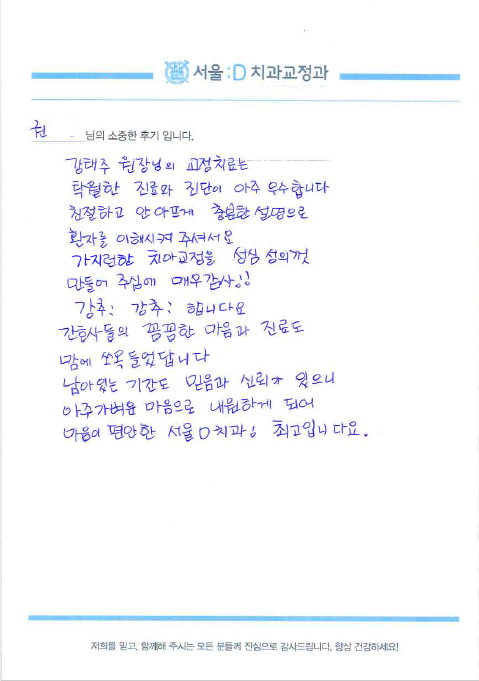 서울:D 치과교정과
권 님의 소중한 후기 입니다.
강태주 원장님의 교정치료는
탁월한 진료와 진단이 아주 우수합니다
친절하고 안아프게 충분한 설명으로
환자를 이해시켜 주셔서요
가지런한 치아교정을 성심 성의껏
만들어 주심에 매우감사!!
강추! 강추! 합니다요
간호사들의 꼼꼼한 마음과 진료도
맘에 쏘옥 들었답니다
남아있는 기간도 믿음과 신뢰가 있으니
아주가벼운 마음으로 내원하게 되어
마음이 편안한 서울D치과! 최고입니다요.
저희를 믿고, 함께해 주시는 모든 분들께 진심으로 감사드립니다. 항상 건강하세요!